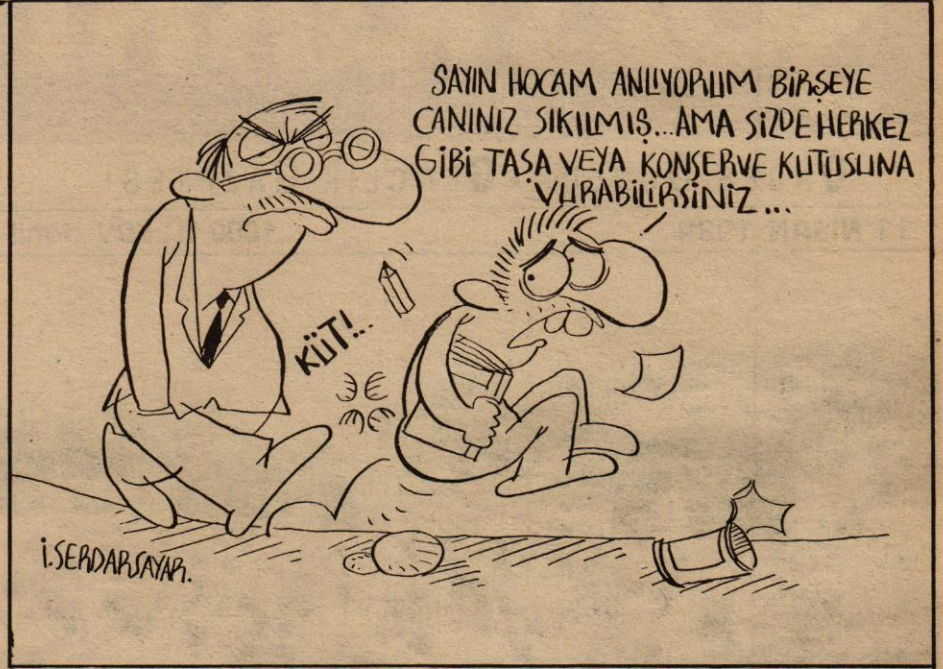 SAYIN HOCAM ANLIYORUM BİRŞEYE
CANINIZ SIKILMIŞ...AMA SİZDE HERKEZ
GİBİ TAŞA VEYA KONSERVE KUTUSUNA
VURABİLİRSİNİZ...
KÜT!...
İ.SERDARSAYAR.